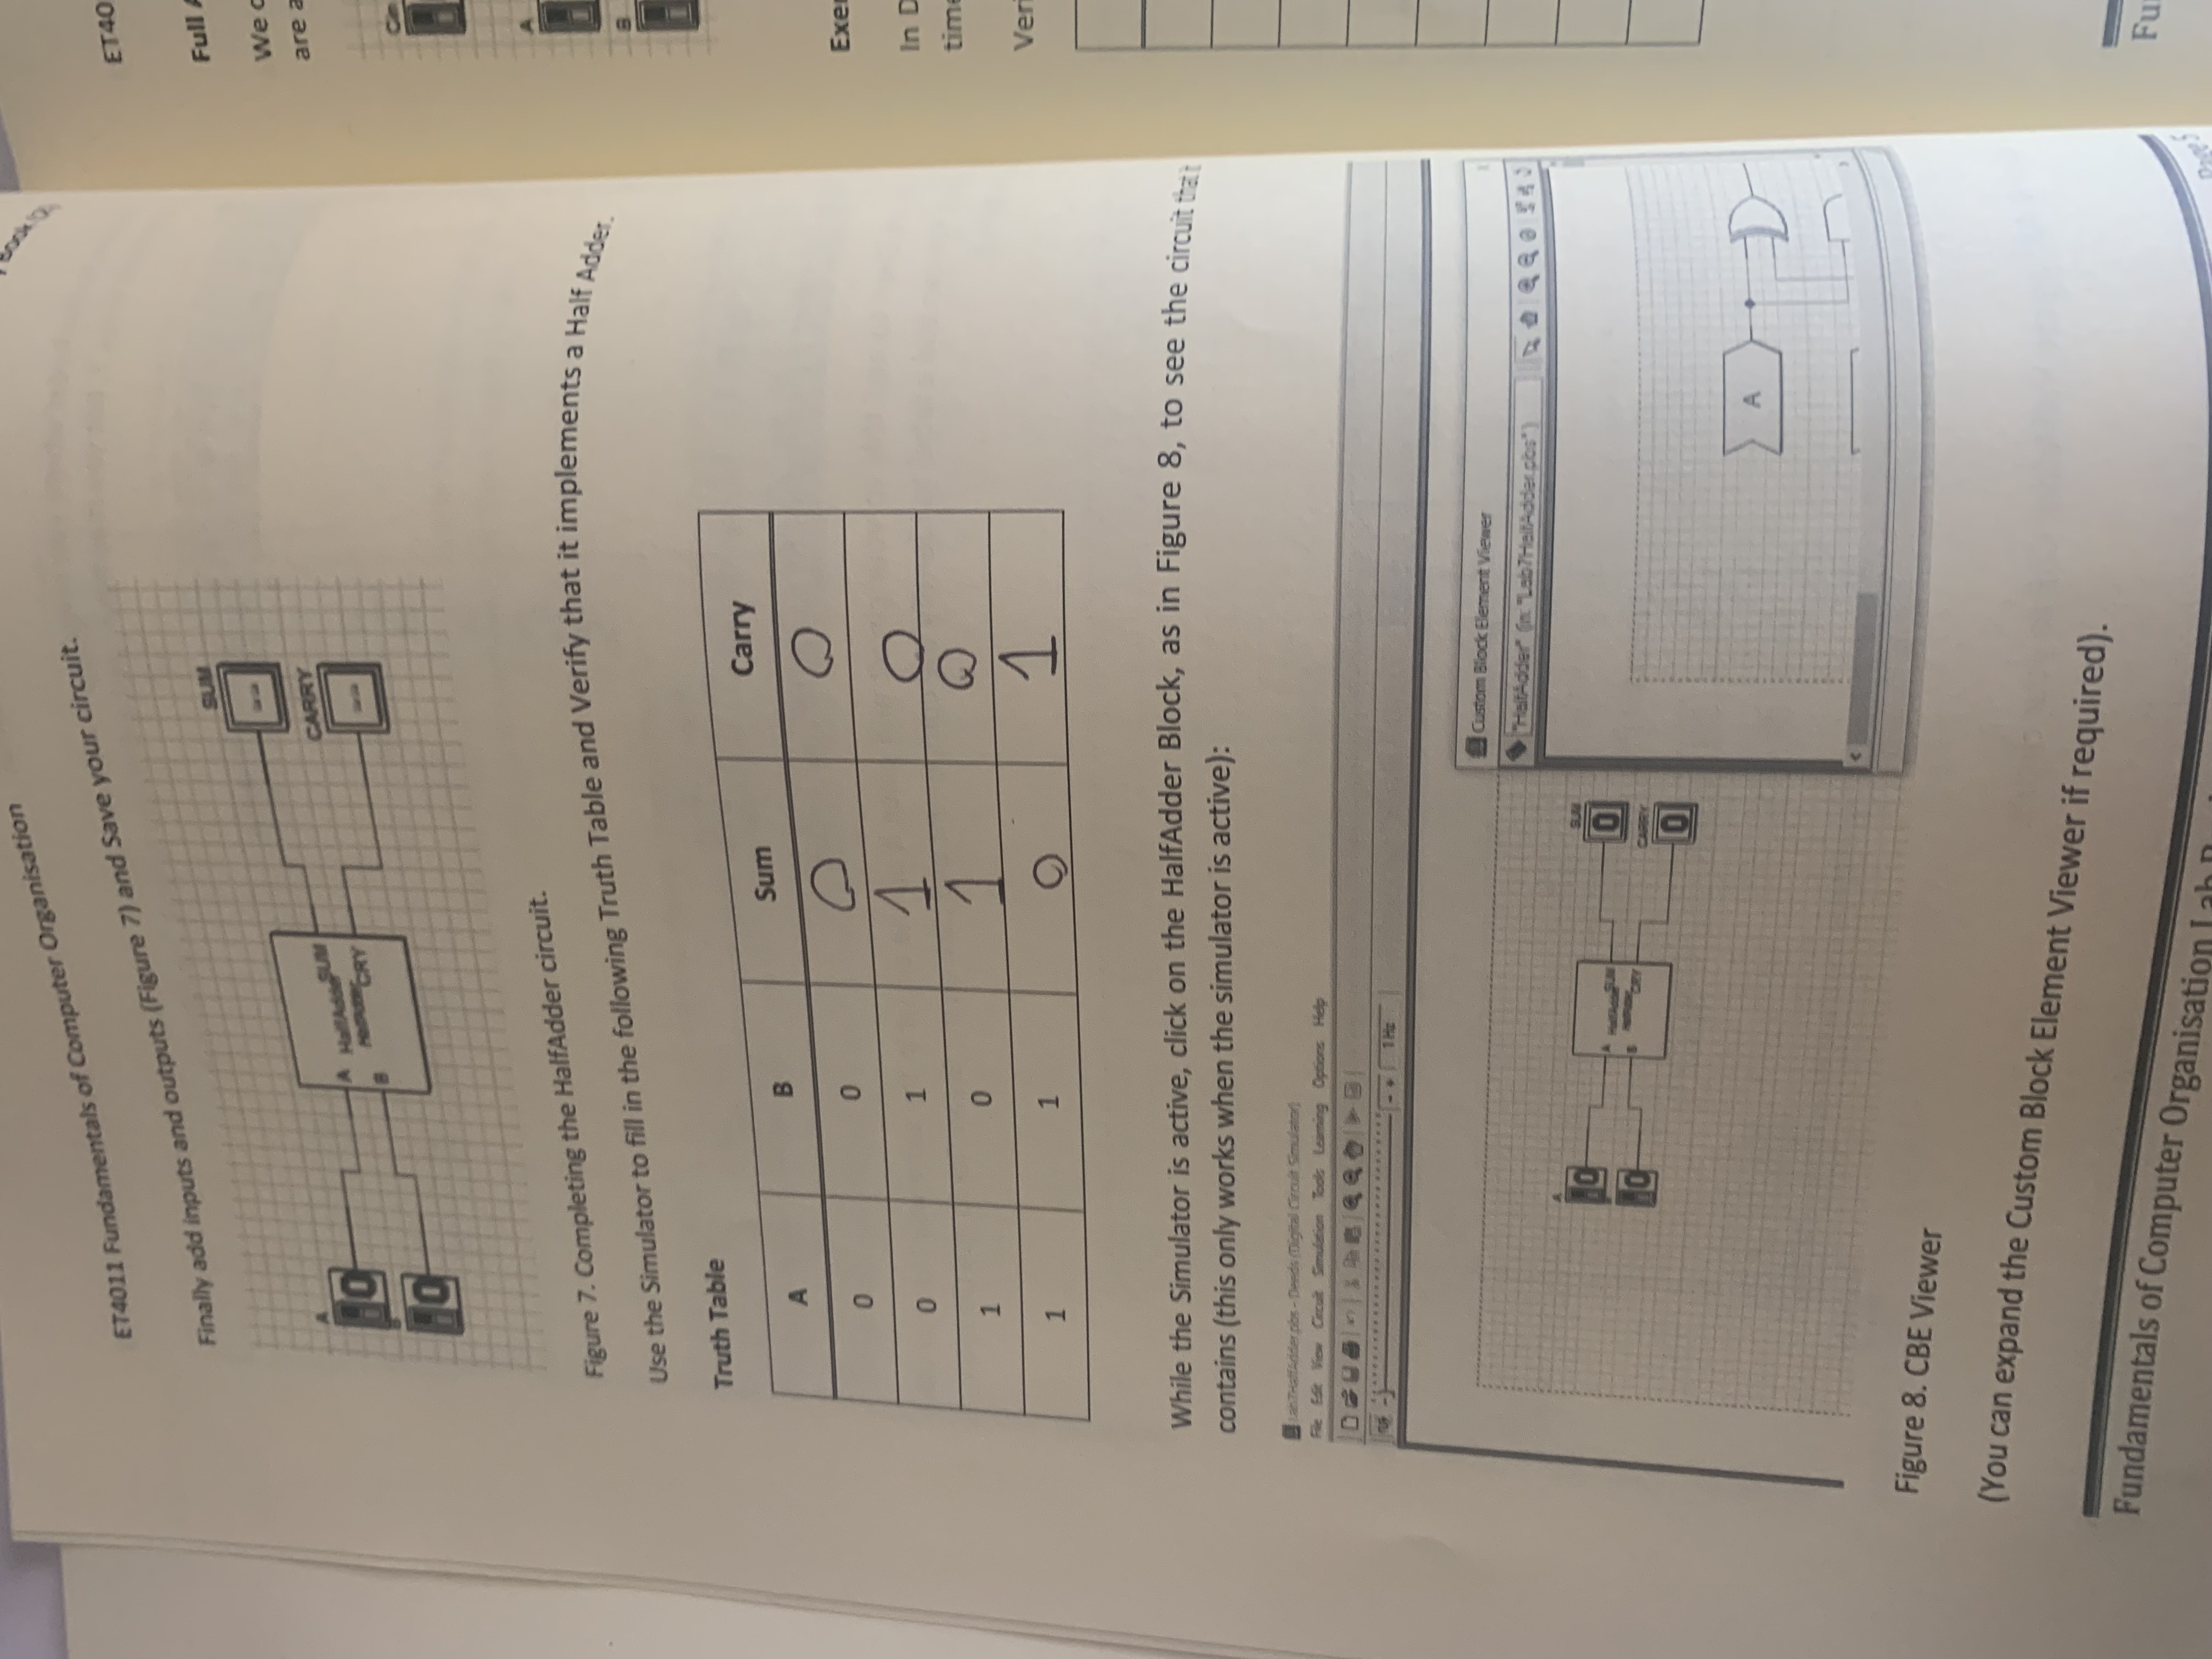 ET4011 Fundamentals of Computer Organisation
Book
Finally add inputs and outputs (Figure 7) and Save your circuit.
SUM
A
A HalfAdder SUM
CARRY
0
B
HalfAdder CRY
0
Figure 7. Completing the HalfAdder circuit.
Use the Simulator to fill in the following Truth Table and Verify that it implements a Half Adder.
Truth Table
A B Sum Carry
0 0 0 0
0 1 1 0
1 0 1 0
1 1 0 1
While the Simulator is active, click on the HalfAdder Block, as in Figure 8, to see the circuit that it
contains (this only works when the simulator is active):
Lab7HalfAdder.pbs - Deeds (Digital Circuit Simulator)
File Edit View Circuit Simulation Tools Learning Options Help
1 Hz
Custom Block Element Viewer
"HalfAdder" (in: "Lab7HalfAdder.pbs")
A
0
0
A HalfAdder SUM
B HalfAdder CRY
SUM
0
CARRY
0
A
Figure 8. CBE Viewer
(You can expand the Custom Block Element Viewer if required).
Fundamentals of Computer Organisation Lab
Page 5
ET40
Full
We
are a
Cin
A
B
Exer
In D
time
Veri
Fu